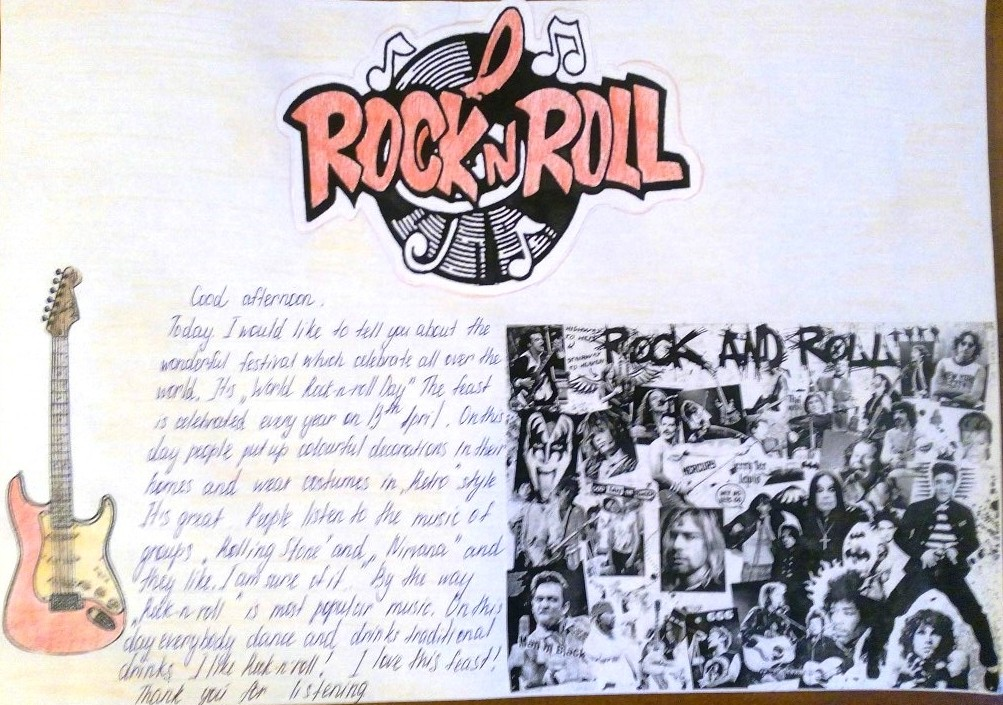 ROCK N ROLL
Good afternoon.
Today I would like to tell you about the
wonderful festival which celebrate all over the
world. It's „World Rock-n-roll Day" The feast
is celebrated every year on 13th April. On this
day people put up colourful decorations in their
homes and wear costumes in „Retro" style
It's great. People listen to the music of
groups „Rolling Stone" and „Nirvana" and
they like. I am sure of it. By the way
„Rock-n-roll" is most popular music. On this
day everybody dance and drinks traditional
drinks. I like Rock-n-roll! I love this feast!
Thank you for listening
ROCK AND ROLL
MERCURY
Man in Black